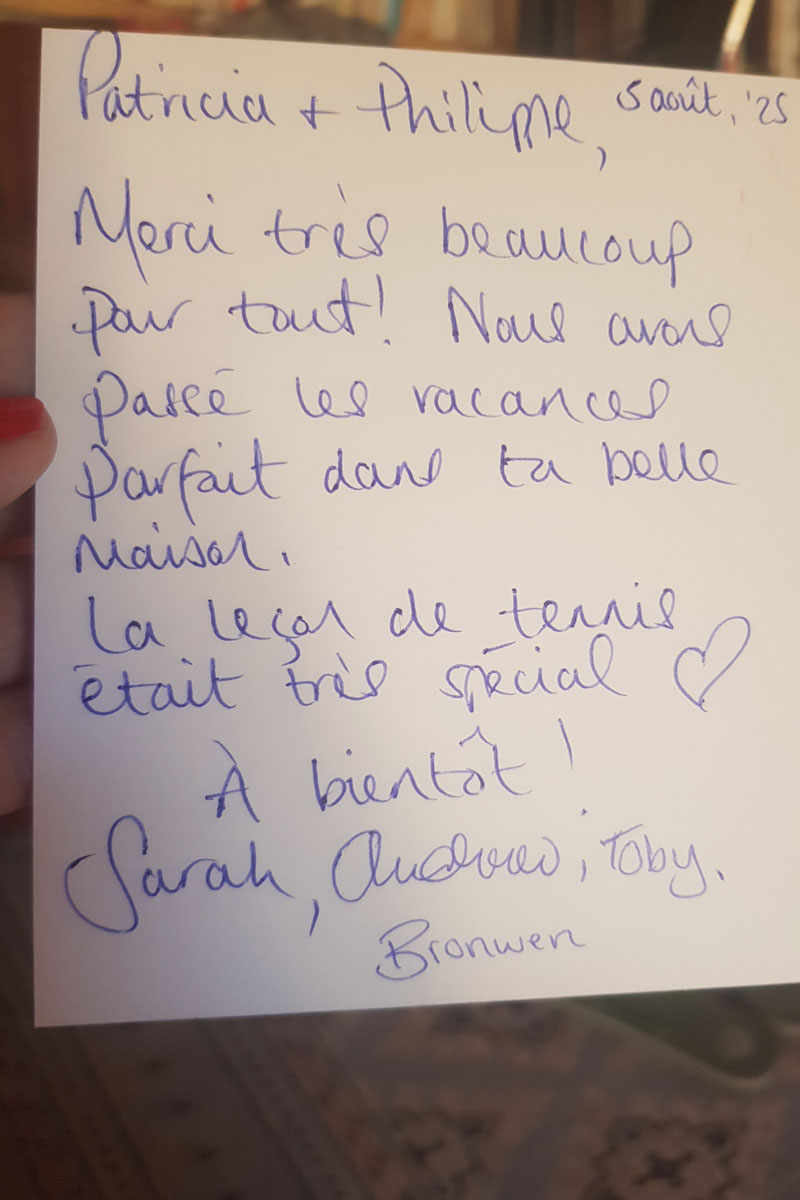 Patricia + Philippe, 5 août, '25
Merci très beaucoup
pour tout! Nous avons
passé les vacances
parfait dans ta belle
maison.
La leçon de tennis
était très spécial ♡
À bientôt!
Sarah, Andrew, Toby.
Bronwen